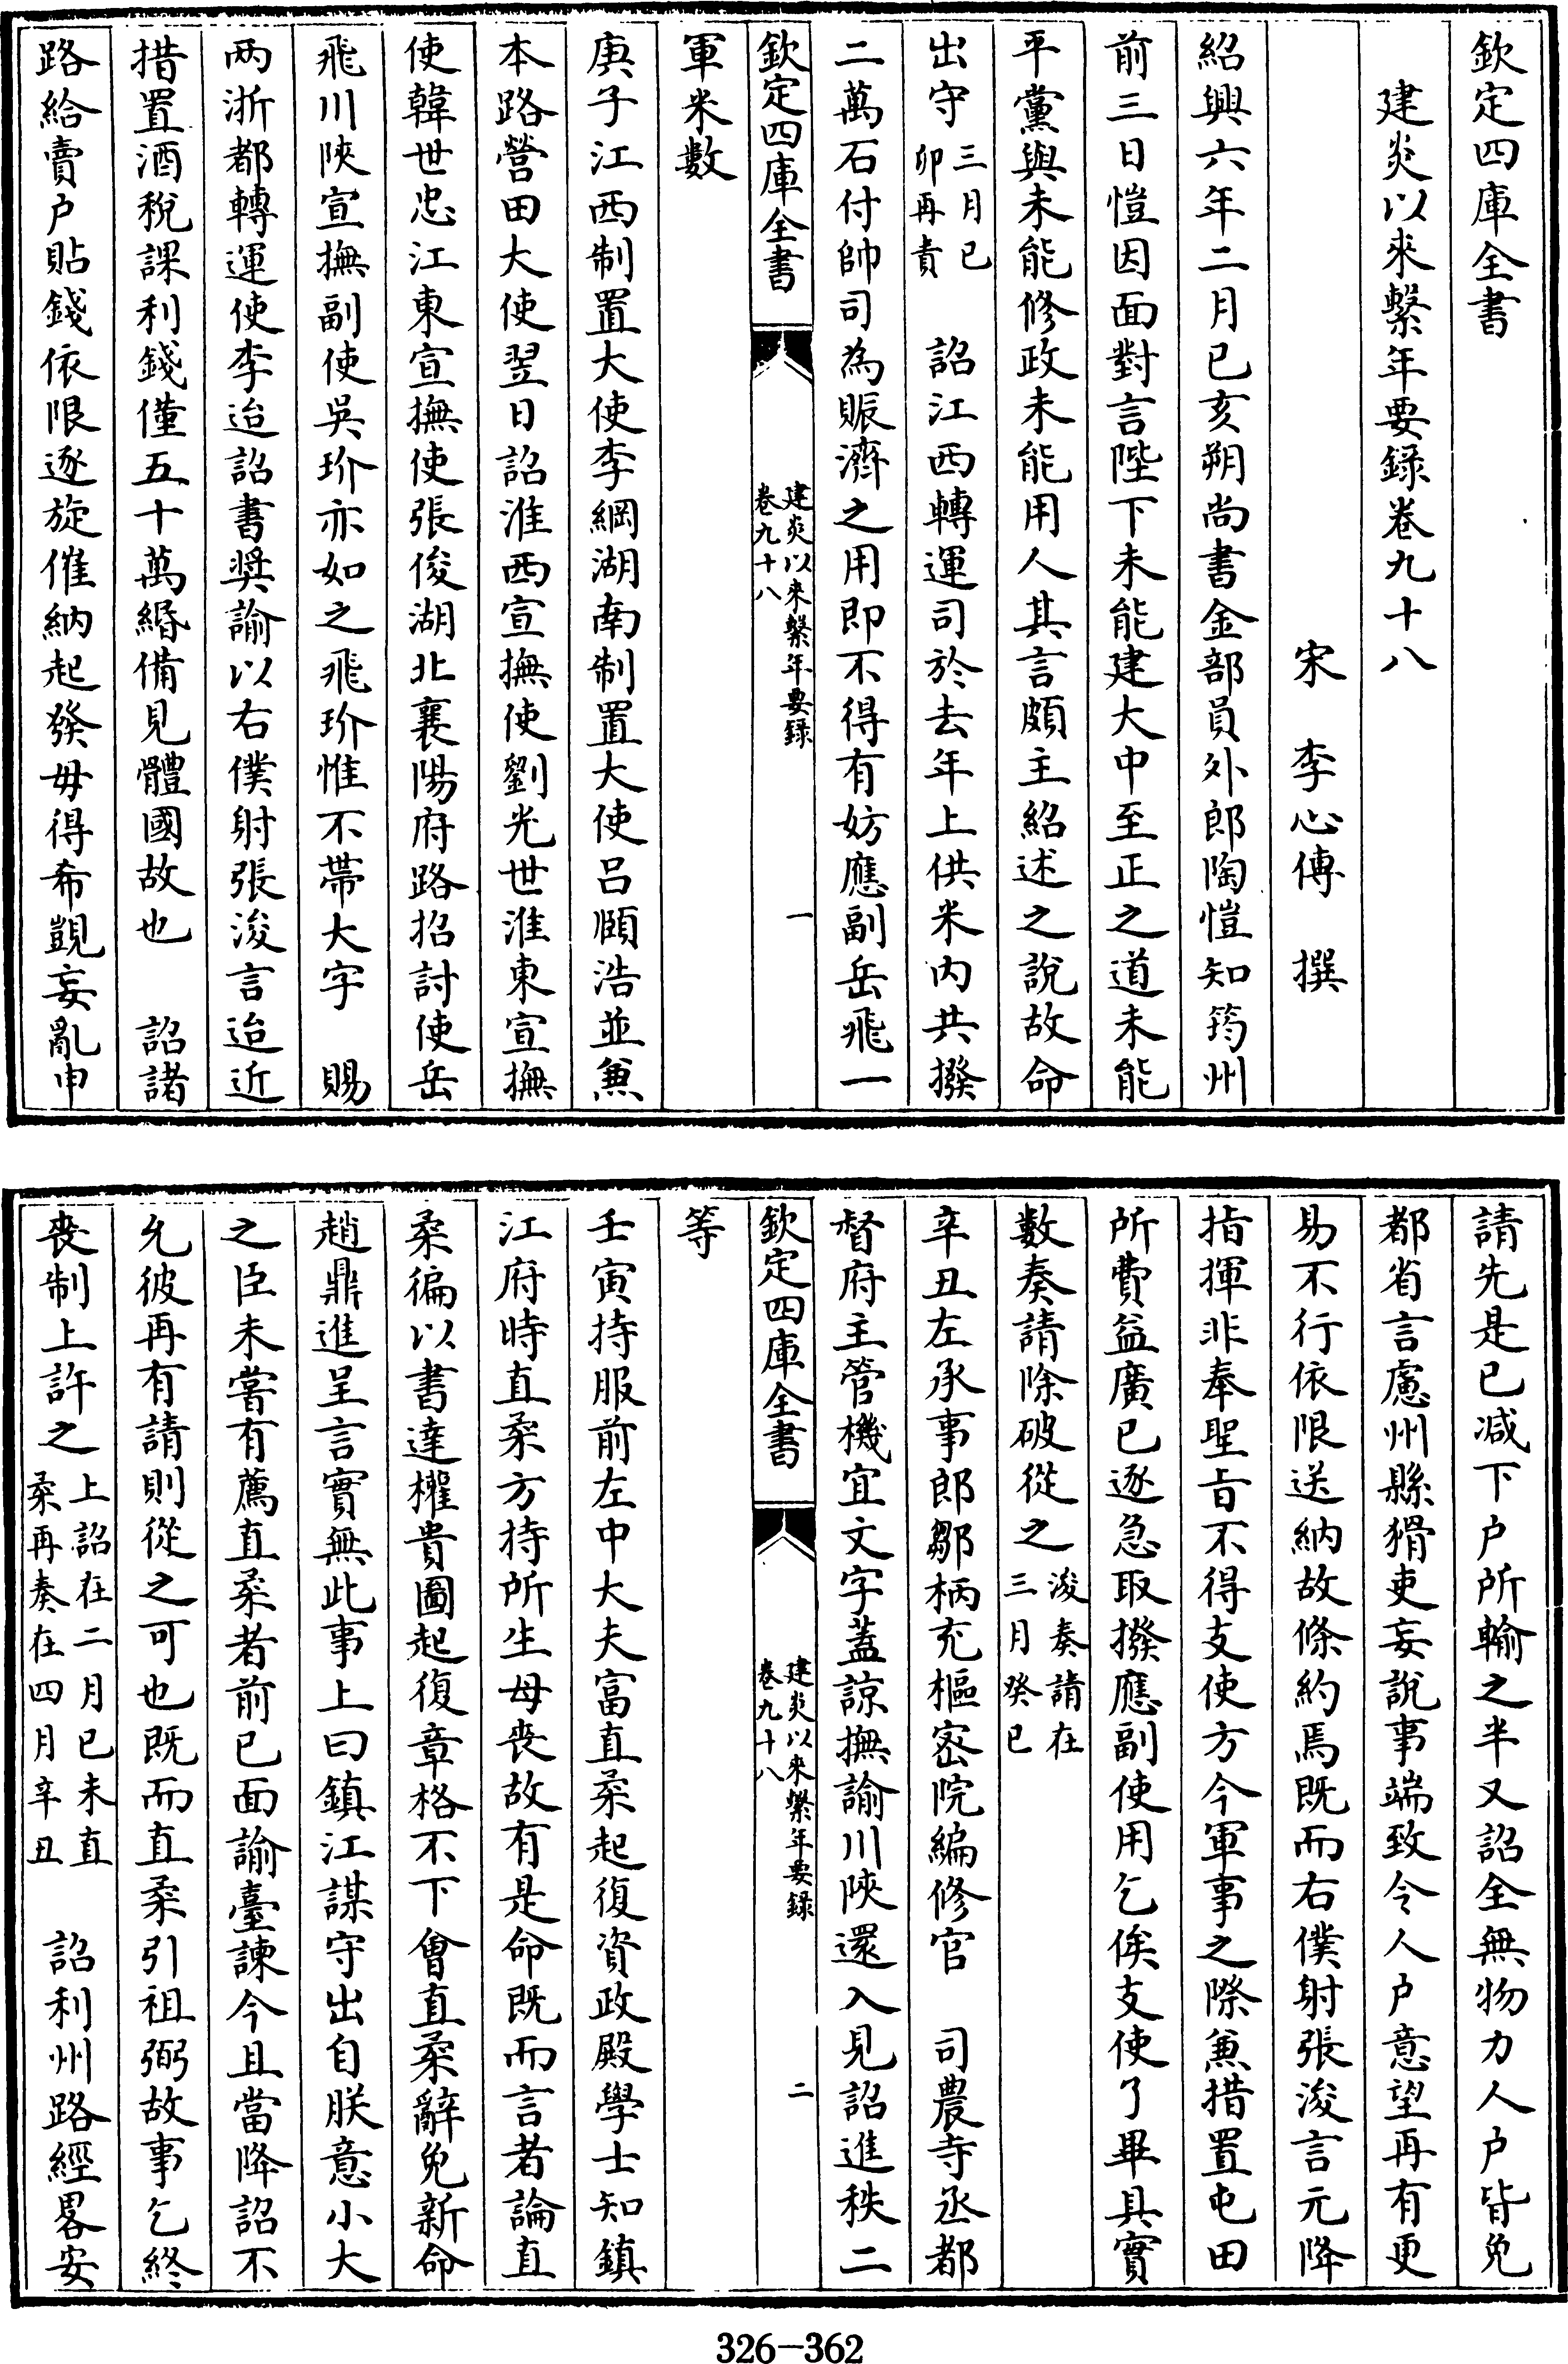 欽定四庫全書
建炎以來繫年要録卷九十八
宋 李心傳 撰
紹興六年二月已亥朔尚書金部員外郎陶愷知筠州
前三日愷因面對言陛下未能建大中至正之道未能
平黨與未能修政未能用人其言頗主紹述之說故命
出守三月已卯再責 詔江西轉運司於去年上供米内共撥
二萬石付帥司為賑濟之用即不得有妨應副岳飛一
欽定四庫全書 建炎以來繫年要録 卷九十八 一
軍米數
庚子江西制置大使李綱湖南制置大使吕頤浩並兼
本路營田大使翌日詔淮西宣撫使劉光世淮東宣撫
使韓世忠江東宣撫使張俊湖北襄陽府路招討使岳
飛川陝宣撫副使吳玠亦如之飛玠惟不帶大字 賜
两浙都轉運使李迨詔書奬諭以右僕射張浚言迨近
措置酒稅課利錢僅五十萬緡備見體國故也 詔諸
路給賣户貼錢依限逐旋催納起發毋得希覬妄亂申
請先是已减下户所輸之半又詔全無物力人户皆免
都省言慮州縣猾吏妄說事端致令人户意望再有更
易不行依限送納故條約焉既而右僕射張浚言元降
指揮非奉聖旨不得支使方今軍事之際兼措置屯田
所費益廣已逐急取撥應副使用乞俟支使了畢具實
數奏請除破從之浚奏請在三月癸已
辛丑左承事郎鄒柄充樞密院編修官 司農寺丞都
督府主管機宜文字蓋諒撫諭川陝還入見詔進秩二
欽定四庫全書 建炎以來繫年要録 卷九十八 二
等
壬寅持服前左中大夫富直柔起復資政殿學士知鎮
江府時直柔方持所生母喪故有是命既而言者論直
柔徧以書達權貴圖起復章格不下會直柔辭免新命
趙鼎進呈言實無此事上曰鎮江謀守出自朕意小大
之臣未嘗有薦直柔者前已面諭臺諫今且當降詔不
允彼再有請則從之可也既而直柔引祖弼故事乞終
喪制上許之上詔在二月已未直柔再奏在四月辛丑 詔利州路經畧安
326-362